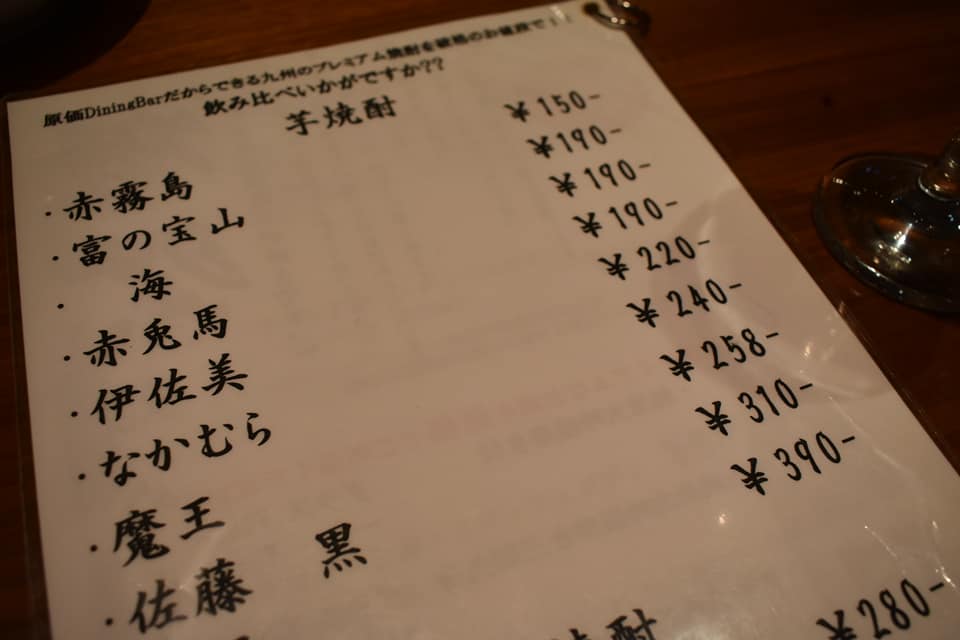 原価DiningBarだからできる九州のプレミアム焼酎を破格のお値段で!!
飲み比べいかがですか??
芋焼酎
・赤霧島 ¥150-
・富の宝山 ¥190-
・海 ¥190-
・赤兎馬 ¥190-
・伊佐美 ¥220-
・なかむら ¥240-
・魔王 ¥258-
・佐藤 黒 ¥310-
¥390-
焼酎
¥280-